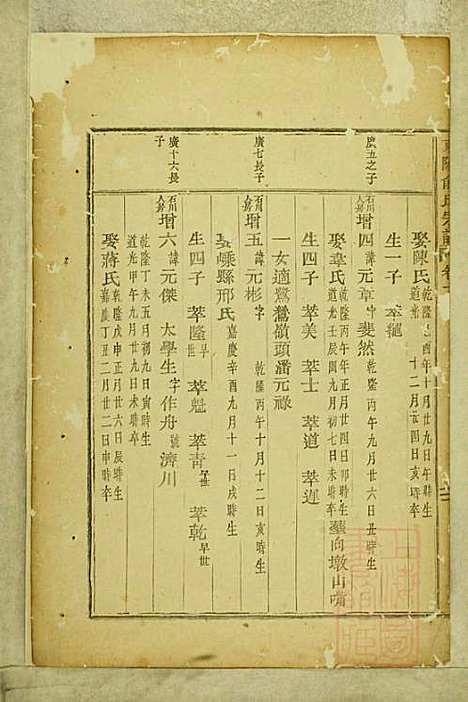 娶陳氏
酉年十月廿九日午時生
十二月廿四日亥時卒
生一子 萃寵
廣五之子
石川人房
增四 諱元章 字斐然 乾隆丙午九月廿六日丑時生
娶韋氏 乾隆丙午年正月廿四日卯時生
道光壬辰閏九月初七日未時卒 葬向墩山嘴
生四子 萃美 萃士 萃道 萃遲
一女適鷺鷥嶺頭潘元祿
廣七長子
增五 諱元彬 字 乾隆丙午十月十二日亥時生
娶嵊縣邢氏 嘉慶辛酉九月十一日戌時生
生四子 萃隆 早世 萃魁 萃青 萃乾 早世
廣十六長子
增六 諱元傑 太學生 字作舟 號濟川
乾隆丁未五月初九日寅時生
道光甲午九月廿九日戌時卒
娶蔣氏 乾隆戊申正月廿六日辰時生
嘉慶丁丑二月廿二日申時卒